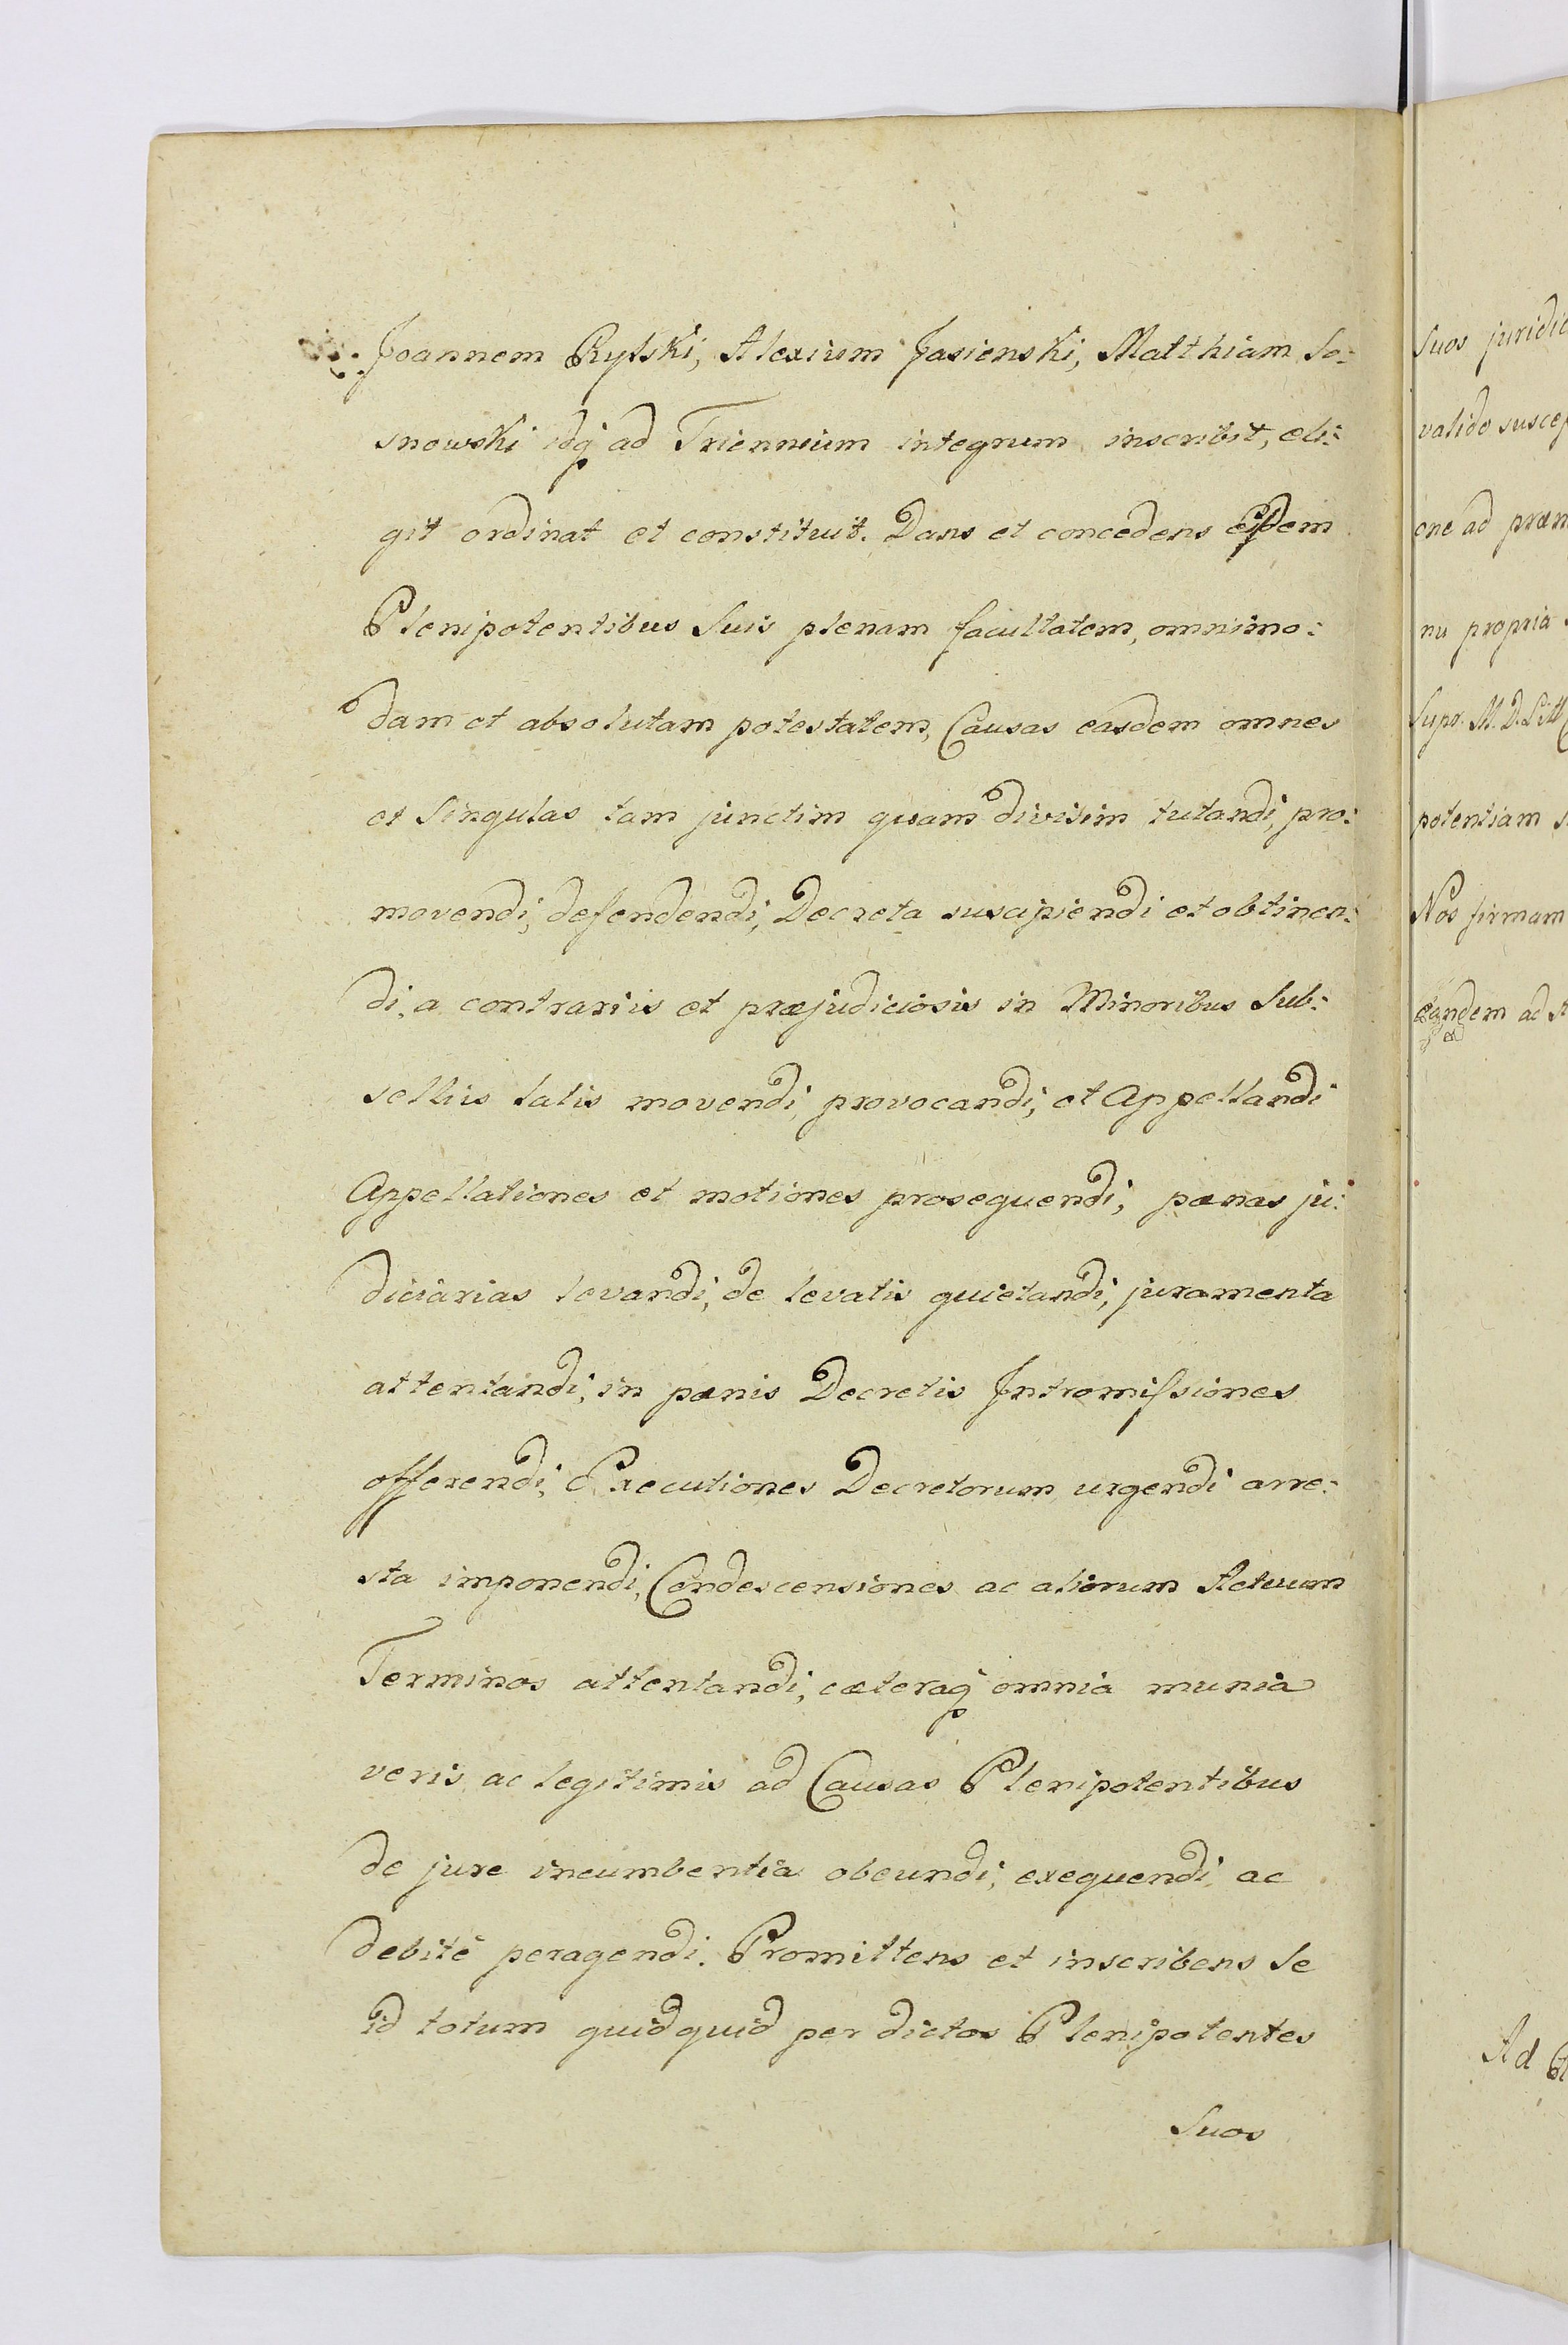 Joannem Rylski, Alexium Jasienski, Matthiam So:
snowski idq ad Triennium integrum inscribit, eli:
git ordinat et constituit. Dans et concedens eisdem
Plenipotentibus Suis plenam facultatem, omnimo:
dam et absolutam potestatem, Causas easdem omnes
et Singulas tam junctim quam divisim tutandi, pro:
movendi, defendendi, Decreta suscipiendi et obtinen:
di, a contrariis et præjudiciosis in Minoribus Sub:
selliis latis movendi, provocandi, et Appellandi
Appellationes et motiones prosequendi, pænas ju:
diciarias levandi, de levatis quietandi, juramenta
attentandi, in pænis Decretis Intromissiones
offerendi, Executiones Decretorum urgendi arre:
sta imponendi, Condescensiones ac aliorum Actuum
Terminos attentandi, cæteraq omnia munia
veris ac legitimis ad Causas Plenipotentibus
de jure incumbentia obeundi, exequendi ac
debitè peragendi. Promittens et inscribens Se
id totum quidquid per dictos Plenipotentes
Suos
Suos juridic
valido suscep
one ad præm
nu propria
Supr. M. D. Litt
potentiam
Nos firmam
eandem ad
Ad